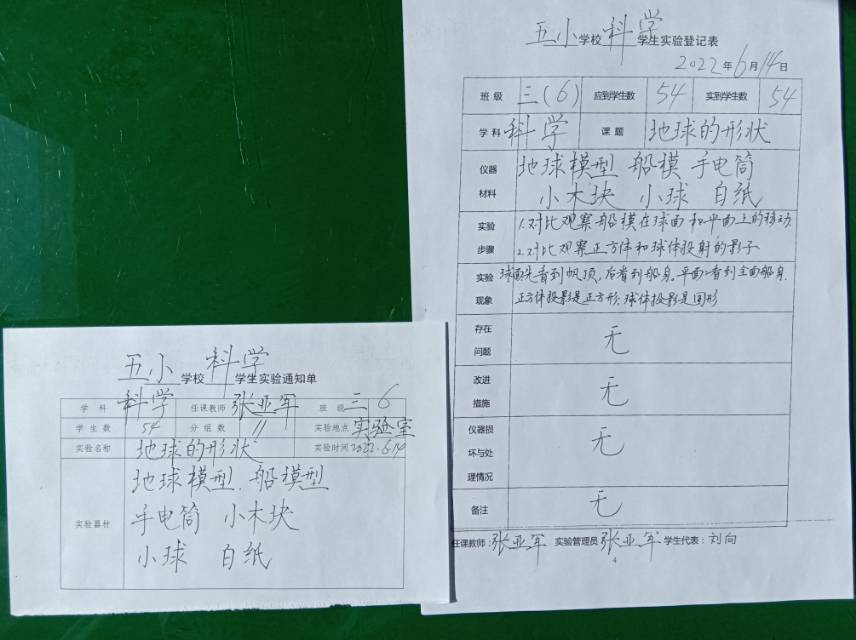 五小学校科学学生实验通知单
学科 科学 任课教师 张亚军 班级 三 6
学生数 54 分组数 11 实验地点 实验室
实验名称 地球的形状 实验时间 2022.6.14
实验器材 地球模型、船模型
手电筒 小木块
小球 白纸
五小学校科学学生实验登记表
2022年6月14日
班级 三(6) 应到学生数 54 实到学生数 54
学科 科学 课题 地球的形状
仪器材料 地球模型 船模 手电筒
小木块 小球 白纸
实验步骤 1.对比观察船模在球面和平面上的移动.
2.对比观察正方体和球体投射的影子
实验现象 球面先看到帆顶,后看到船身。平面看到全面船身.
正方体投影是正方形;球体投影是圆形
存在问题 无
改进措施 无
仪器损坏与处理情况 无
备注 无
任课教师:张亚军 实验管理员 张亚军 学生代表:刘向